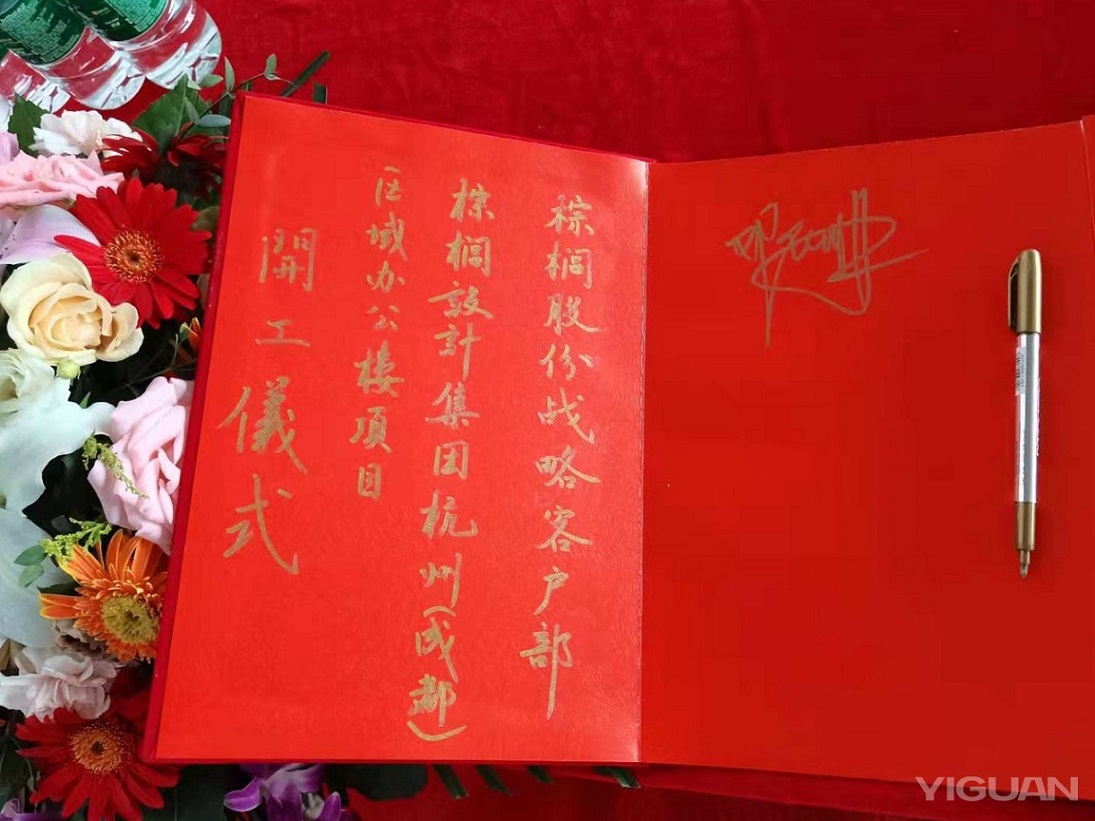 棕榈股份战略客户部
棕榈設計集团杭州(成都)
区域办公楼項目
開工儀式
YIGUAN